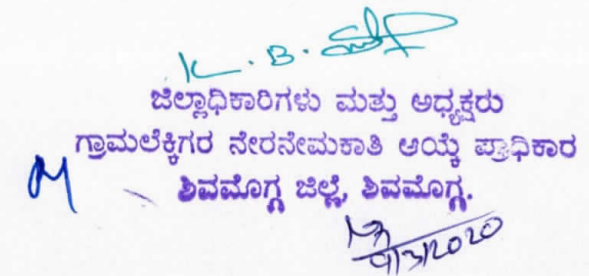 K. B.
ಜಿಲ್ಲಾಧಿಕಾರಿಗಳು ಮತ್ತು ಅಧ್ಯಕ್ಷರು
ಗ್ರಾಮಲೆಕ್ಕಿಗರ ನೇರನೇಮಕಾತಿ ಆಯ್ಕೆ ಪ್ರಾಧಿಕಾರ
ಶಿವಮೊಗ್ಗ ಜಿಲ್ಲೆ, ಶಿವಮೊಗ್ಗ.